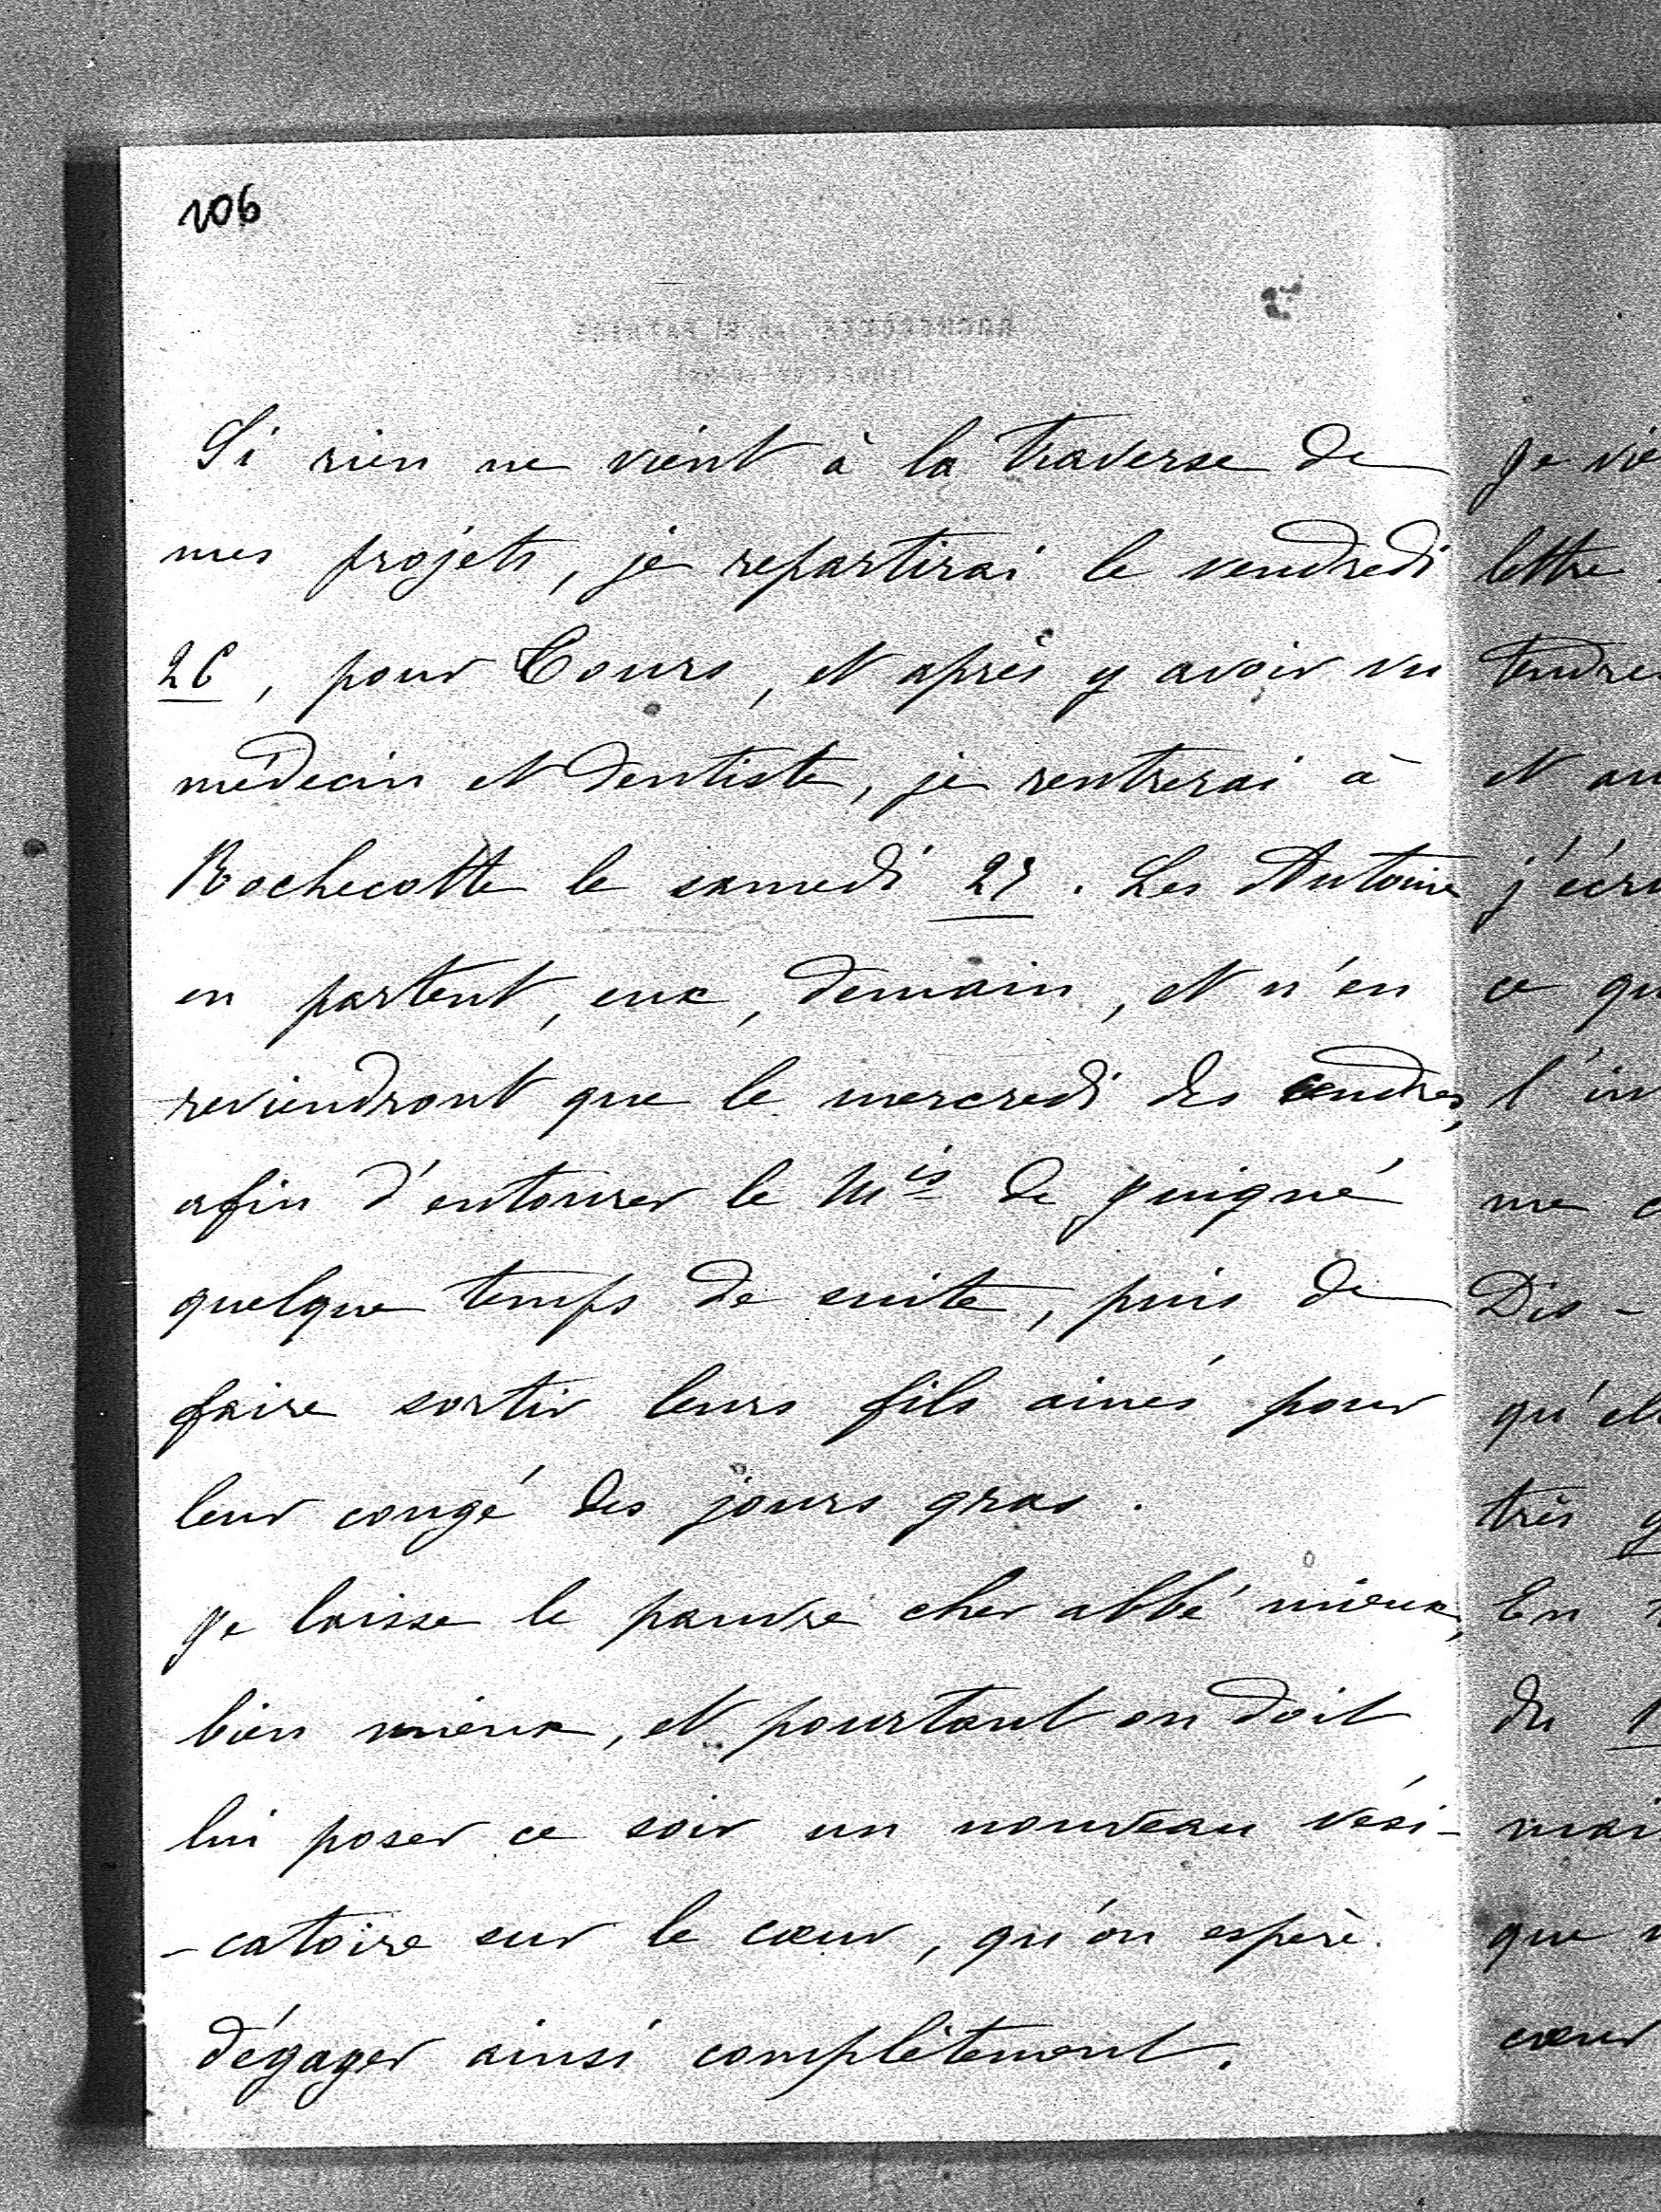 106
Si rien ne vient à la traverse de
mes projets, je repartirai le vendredi
26, pour Tours, et après y avoir vu
médecin et dentiste, je rentrerai à
Rochecotte le samedi 27. Les Antoine
en partent, eux, demain, et n'en
reviendront que le mercredi des cendres,
afin d'entourer le Mis de Juigné
quelque temps de suite, puis de
faire sortir leurs fils ainés pour
leur congé des jours gras.
Je laisse le pauvre cher abbé mieux,
bien mieux, et pourtant on doit
lui poser ce soir un nouveau vési-
-catoire sur le cœur, qu'on espère
dégager ainsi complètement.
lettre
ce
l'
me
Dis-
très
En
du
que
cœur